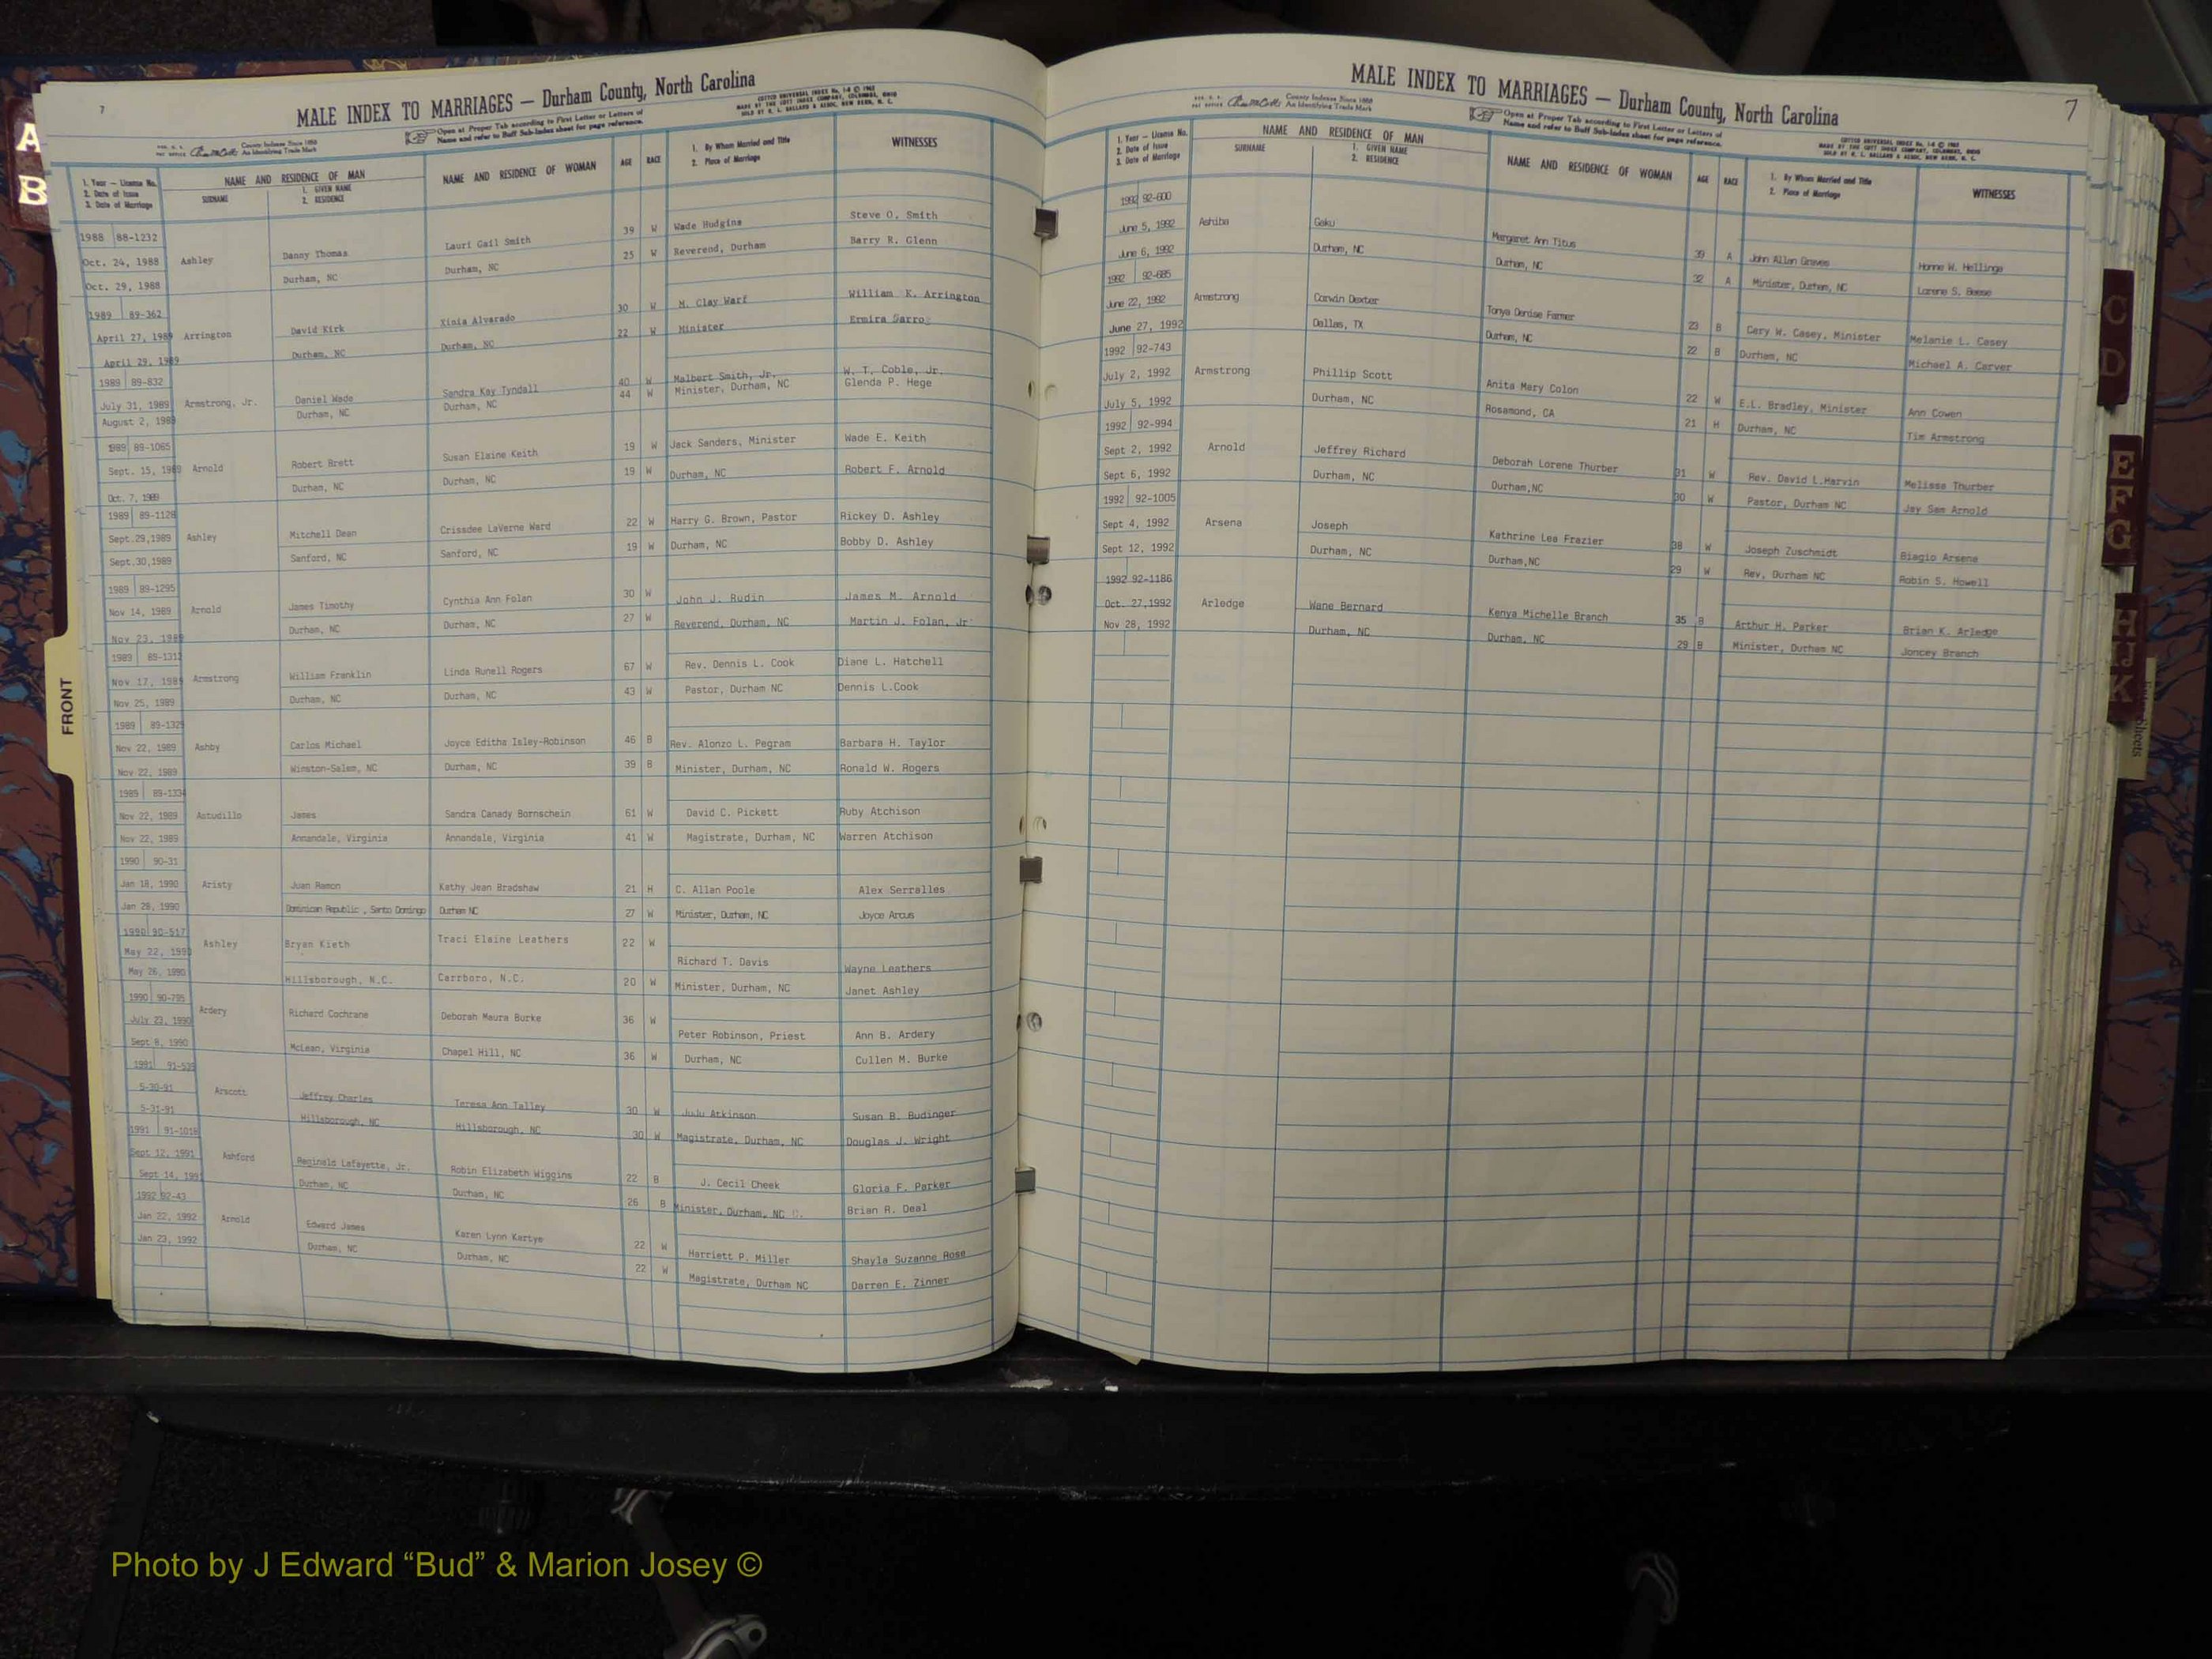 7
MALE INDEX TO MARRIAGES — Durham County, North Carolina
Open at Proper Tab according to First Letter or Letters of
Name and refer to Buff Sub-Index sheet for page reference.
County Indexes Since 1888
An Identifying Trade Mark
1. Year — License No.
2. Date of Issue
3. Date of Marriage
NAME AND RESIDENCE OF MAN
SURNAME
1. GIVEN NAME
2. RESIDENCE
NAME AND RESIDENCE OF WOMAN
AGE
RACE
1. By Whom Married and Title
2. Place of Marriage
WITNESSES
1988 88-1232 39 W Wade Hudgins Steve O. Smith
Oct. 24, 1988 Ashley Danny Thomas Lauri Gail Smith 25 W Reverend, Durham Barry R. Glenn
Oct. 29, 1988 Durham, NC Durham, NC
1989 89-362 30 W M. Clay Warf William K. Arrington
April 27, 1989 Arrington David Kirk Xinia Alvarado 22 W Minister Ermira
April 29, 1989 Durham, NC Durham, NC
1989 89-832 40 W Malbert Smith, Jr. W. T. Coble, Jr.
July 31, 1989 Armstrong, Jr. Daniel Wade Sandra Kay Tyndall 44 W Minister, Durham, NC Glenda P. Hege
August 2, 1989 Durham, NC Durham, NC
1989 89-1065 19 W Jack Sanders, Minister Wade E. Keith
Sept. 15, 1989 Arnold Robert Brett Susan Elaine Keith 19 W Durham, NC Robert F. Arnold
Oct. 7, 1989 Durham, NC Durham, NC
1989 89-1128 22 W Harry G. Brown, Pastor Rickey D. Ashley
Sept.29,1989 Ashley Mitchell Dean Crissdee LaVerne Ward 19 W Durham, NC Bobby D. Ashley
Sept.30,1989 Sanford, NC Sanford, NC
1989 89-1295 30 W John J. Rudin James M. Arnold
Nov 14, 1989 Arnold James Timothy Cynthia Ann Folan 27 W Reverend, Durham, NC Martin J. Folan, Jr
Nov 23, 1989 Durham, NC Durham, NC
1989 89-1313 67 W Rev. Dennis L. Cook Diane L. Hatchell
Nov 17, 1989 Armstrong William Franklin Linda Runell Rogers 43 W Pastor, Durham NC Dennis L.Cook
Nov 25, 1989 Durham, NC Durham, NC
1989 89-1325 46 B Rev. Alonzo L. Pegram Barbara H. Taylor
Nov 22, 1989 Ashby Carlos Michael Joyce Editha Isley-Robinson 39 B Minister, Durham, NC Ronald W. Rogers
Nov 22, 1989 Winston-Salem, NC Durham, NC
1989 89-1334 61 W David C. Pickett Ruby Atchison
Nov 22, 1989 Astudillo James Sandra Canady Bornschein 41 W Magistrate, Durham, NC Warren Atchison
Nov 22, 1989 Annandale, Virginia Annandale, Virginia
1990 90-31
Jan 18, 1990 Aristy Juan Ramon Kathy Jean Bradshaw 21 H C. Allan Poole Alex Serralles
Jan 28, 1990 Dominican Republic , Santo Domingo Durham NC 27 W Minister, Durham, NC Joyce Arcus
1990 90-517
May 22, 1990 Ashley Bryan Kieth Traci Elaine Leathers 22 W Richard T. Davis Wayne Leathers
May 26, 1990 Hillsborough, N.C. Carrboro, N.C. 20 W Minister, Durham, NC Janet Ashley
1990 90-795
July 23, 1990 Ardery Richard Cochrane Deborah Maura Burke 36 W Peter Robinson, Priest Ann B. Ardery
Sept 8, 1990 McLean, Virginia Chapel Hill, NC 36 W Durham, NC Cullen M. Burke
1991 91-539
5-30-91 Arscott Jeffrey Charles Teresa Ann Talley 30 W JuJu Atkinson Susan B. Budinger
5-31-91 Hillsborough, NC Hillsborough, NC 30 W Magistrate, Durham, NC Douglas J. Wright
1991 91-1018
Sept 12, 1991 Ashford Reginald Lafayette, Jr. Robin Elizabeth Wiggins 22 B J. Cecil Cheek Gloria F. Parker
Sept 14, 1991 Durham, NC Durham, NC 26 B Minister, Durham, NC Brian R. Deal
1992 92-43
Jan 22, 1992 Arnold Edward James Karen Lynn Kartye 22 W Harriett P. Miller Shayla Suzanne Rose
Jan 23, 1992 Durham, NC Durham, NC 22 W Magistrate, Durham NC Darren E. Zinner
MALE INDEX TO MARRIAGES — Durham County, North Carolina
7
Open at Proper Tab according to First Letter or Letters of
Name and refer to Buff Sub-Index sheet for page reference.
County Indexes Since 1888
An Identifying Trade Mark
1. Year — License No.
2. Date of Issue
3. Date of Marriage
NAME AND RESIDENCE OF MAN
SURNAME
1. GIVEN NAME
2. RESIDENCE
NAME AND RESIDENCE OF WOMAN
AGE
RACE
1. By Whom Married and Title
2. Place of Marriage
WITNESSES
1992 92-600
June 5, 1992 Ashiba Gaku Margaret Ann Titus 39 A John Allan Graves Hanne W. Hellinga
June 6, 1992 Durham, NC Durham, NC 32 A Minister, Durham, NC Lorene S. Beese
1992 92-685
June 22, 1992 Armstrong Corwin Dexter Tonya Denise Farmer 23 B Cary W. Casey, Minister Melanie L. Casey
June 27, 1992 Dallas, TX Durham, NC 22 B Durham, NC Michael A. Carver
1992 92-743
July 2, 1992 Armstrong Phillip Scott Anita Mary Colon 22 W E.L. Bradley, Minister Ann Cowen
July 5, 1992 Durham, NC Rosamond, CA 21 H Durham, NC Tim Armstrong
1992 92-994
Sept 2, 1992 Arnold Jeffrey Richard Deborah Lorene Thurber 31 W Rev. David L.Harvin Melissa Thurber
Sept 6, 1992 Durham, NC Durham,NC 30 W Pastor, Durham NC Jay Sam Arnold
1992 92-1005
Sept 4, 1992 Arsena Joseph Kathrine Lea Frazier 38 W Joseph Zuschmidt Biagio Arsena
Sept 12, 1992 Durham, NC Durham,NC 29 W Rev, Durham NC Robin S. Howell
1992 92-1186
Oct. 27,1992 Arledge Wane Bernard Kenya Michelle Branch 35 B Arthur H. Parker Brian K. Arledge
Nov 28, 1992 Durham, NC Durham, NC 29 B Minister, Durham NC Joncey Branch
A
B
FRONT
C
D
E
F
G
H
IJ
K
Photo by J Edward “Bud” & Marion Josey ©